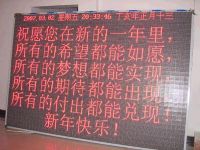 2007.03.02 星期五 20:33:46 丁亥年正月十三
祝愿您在新的一年里，
所有的希望都能如愿，
所有的梦想都能实现，
所有的期待都能出现，
所有的付出都能兑现！
新年快乐！